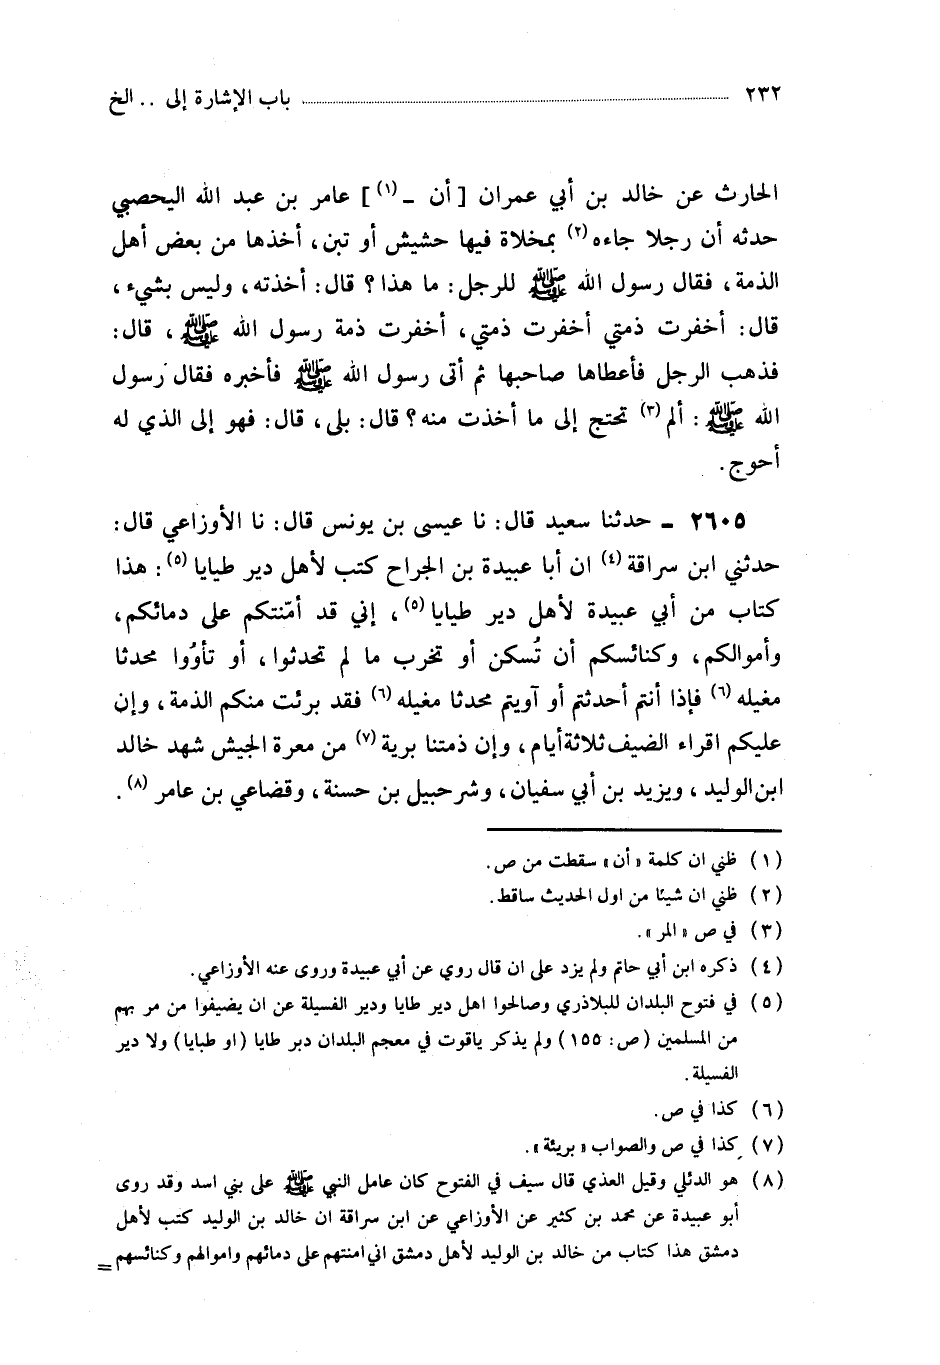 ٢٣٢ ........ باب الإشارة إلى .. الخ
الحارث عن خالد بن أبي عمران [ أن ـ (١) ] عامر بن عبد الله اليحصبي
حدثه أن رجلا جاءه (٢) بمخلاة فيها حشيش أو تبن، أخذها من بعض أهل
الذمة، فقال رسول الله ﷺ للرجل: ما هذا؟ قال: أخذته، وليس بشيء،
قال: أخفرت ذمتي أخفرت ذمتي، أخفرت ذمة رسول الله ﷺ، قال:
فذهب الرجل فأعطاها صاحبها ثم أتى رسول الله ﷺ فأخبره فقال رسول
الله ﷺ: ألم (٣) تحتج إلى ما أخذت منه؟ قال: بلى، قال: فهو إلى الذي له
أحوج.
٢٦٠٥ ـ حدثنا سعيد قال: نا عيسى بن يونس قال: نا الأوزاعي قال:
حدثني ابن سراقة (٤) ان أبا عبيدة بن الجراح كتب لأهل دير طيايا (٥): هذا
كتاب من أبي عبيدة لأهل دير طيايا (٥)، إني قد أمّنتكم على دمائكم،
وأموالكم، وكنائسكم أن تُسكن أو تخرب ما لم تحدثوا، أو تأوُوا محدثا
مغيله (٦) فإذا أنتم أحدثتم أو آويتم محدثا مغيله (٦) فقد برئت منكم الذمة، وإن
عليكم اقراء الضيف ثلاثة أيام، وإن ذمتنا برية (٧) من معرة الجيش شهد خالد
ابن الوليد، ويزيد بن أبي سفيان، وشرحبيل بن حسنة، وقضاعي بن عامر (٨).
(١) ظني ان كلمة «أن» سقطت من ص.
(٢) ظني ان شيئا من اول الحديث ساقط.
(٣) في ص «المر».
(٤) ذكره ابن أبي حاتم ولم يزد على ان قال روي عن أبي عبيدة وروى عنه الأوزاعي.
(٥) في فتوح البلدان للبلاذري وصالحوا اهل دير طايا ودير الفسيلة عن ان يضيفوا من مر بهم
من المسلمين (ص: ١٥٥) ولم يذكر ياقوت في معجم البلدان دبر طايا (او طبايا) ولا دير
الفسيلة.
(٦) كذا في ص.
(٧) كذا في ص والصواب «بريئة».
(٨) هو الدئلي وقيل العذي قال سيف في الفتوح كان عامل النبي ﷺ على بني اسد وقد روى
أبو عبيدة عن محمد بن كثير عن الأوزاعي عن ابن سراقة ان خالد بن الوليد كتب لأهل
دمشق هذا كتاب من خالد بن الوليد لأهل دمشق اني امنتهم على دمائهم واموالهم وكنائسهم =